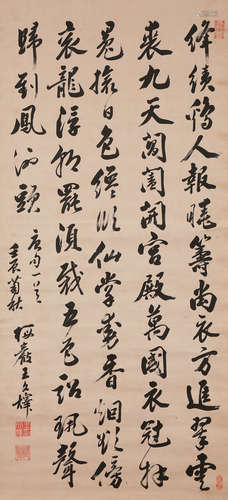 絳幘鷄人報曉籌尚衣方進翠雲
裘九天閶闔開宮殿萬國衣冠拜
冕旒日色纔臨仙掌動香烟欲傍
袞龍浮朝罷須裁五色詔珮聲
歸到鳳池頭
壬辰菊秋